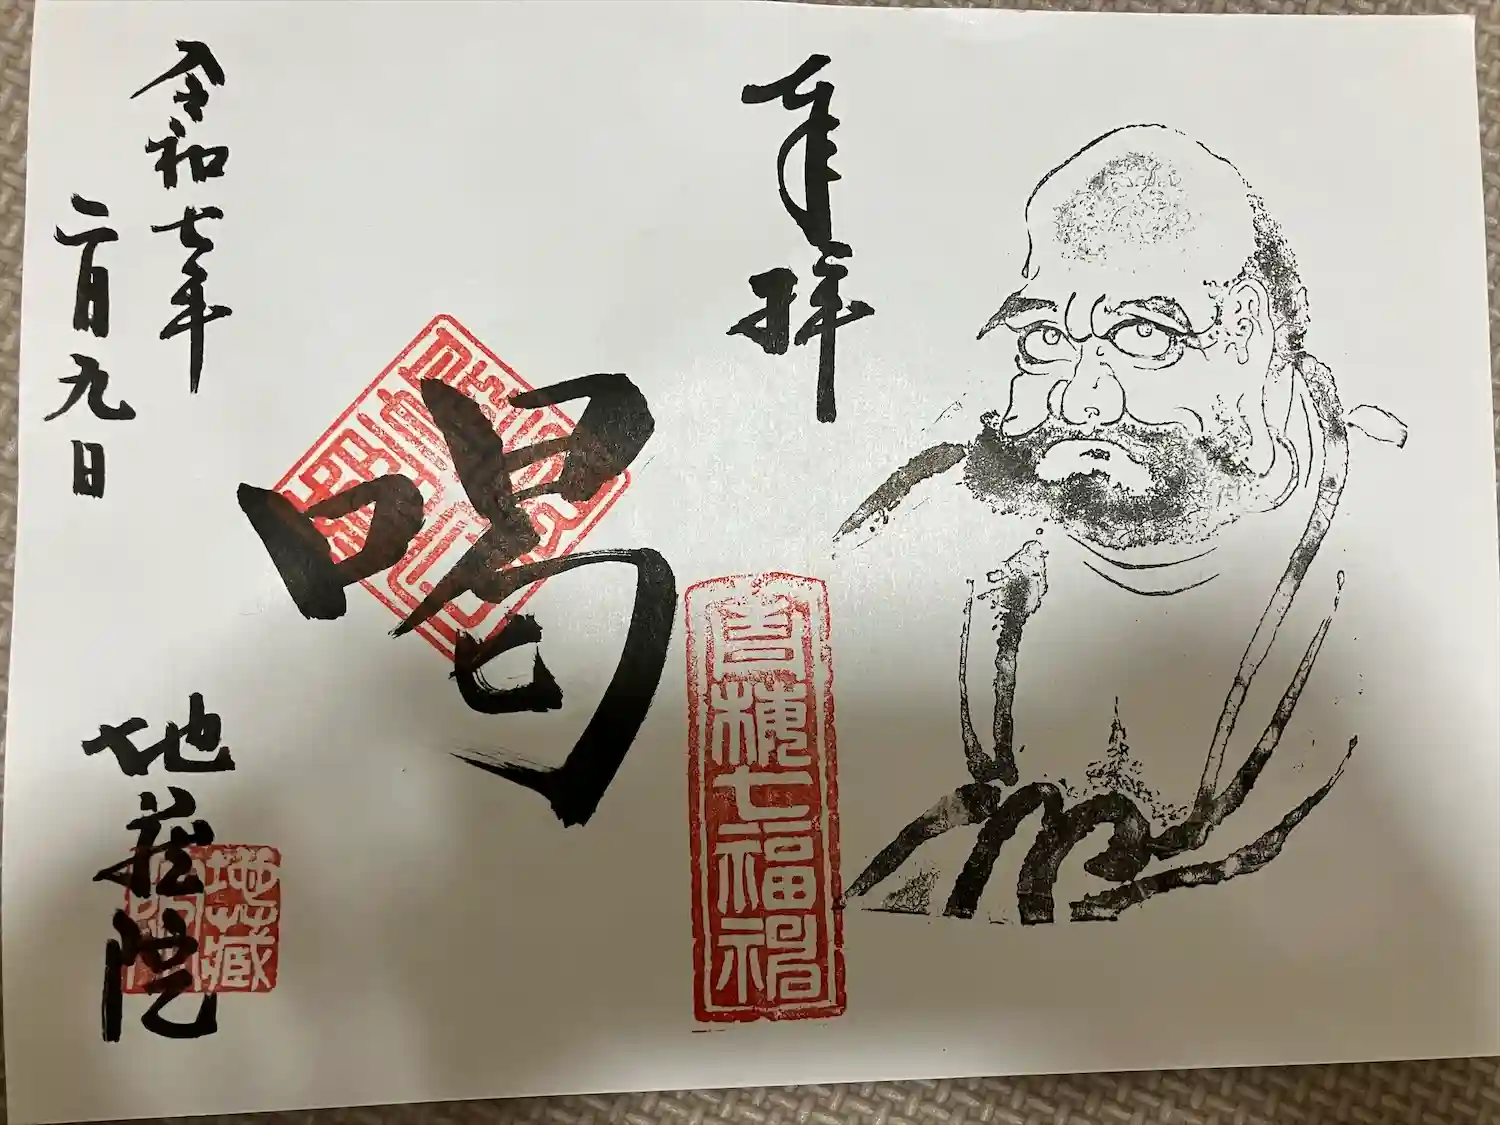 奉拝
青梅七福神
喝
令和七年
二月九日
地蔵院
地蔵院